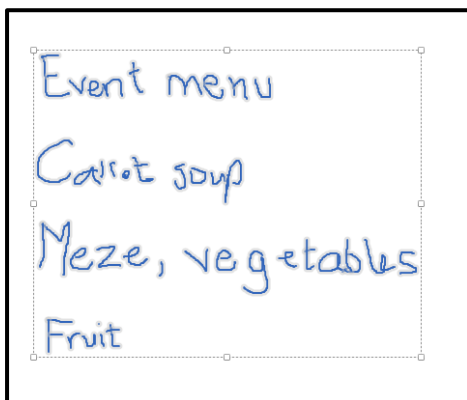 Event menu
Carrot soup
Meze, vegetables
Fruit